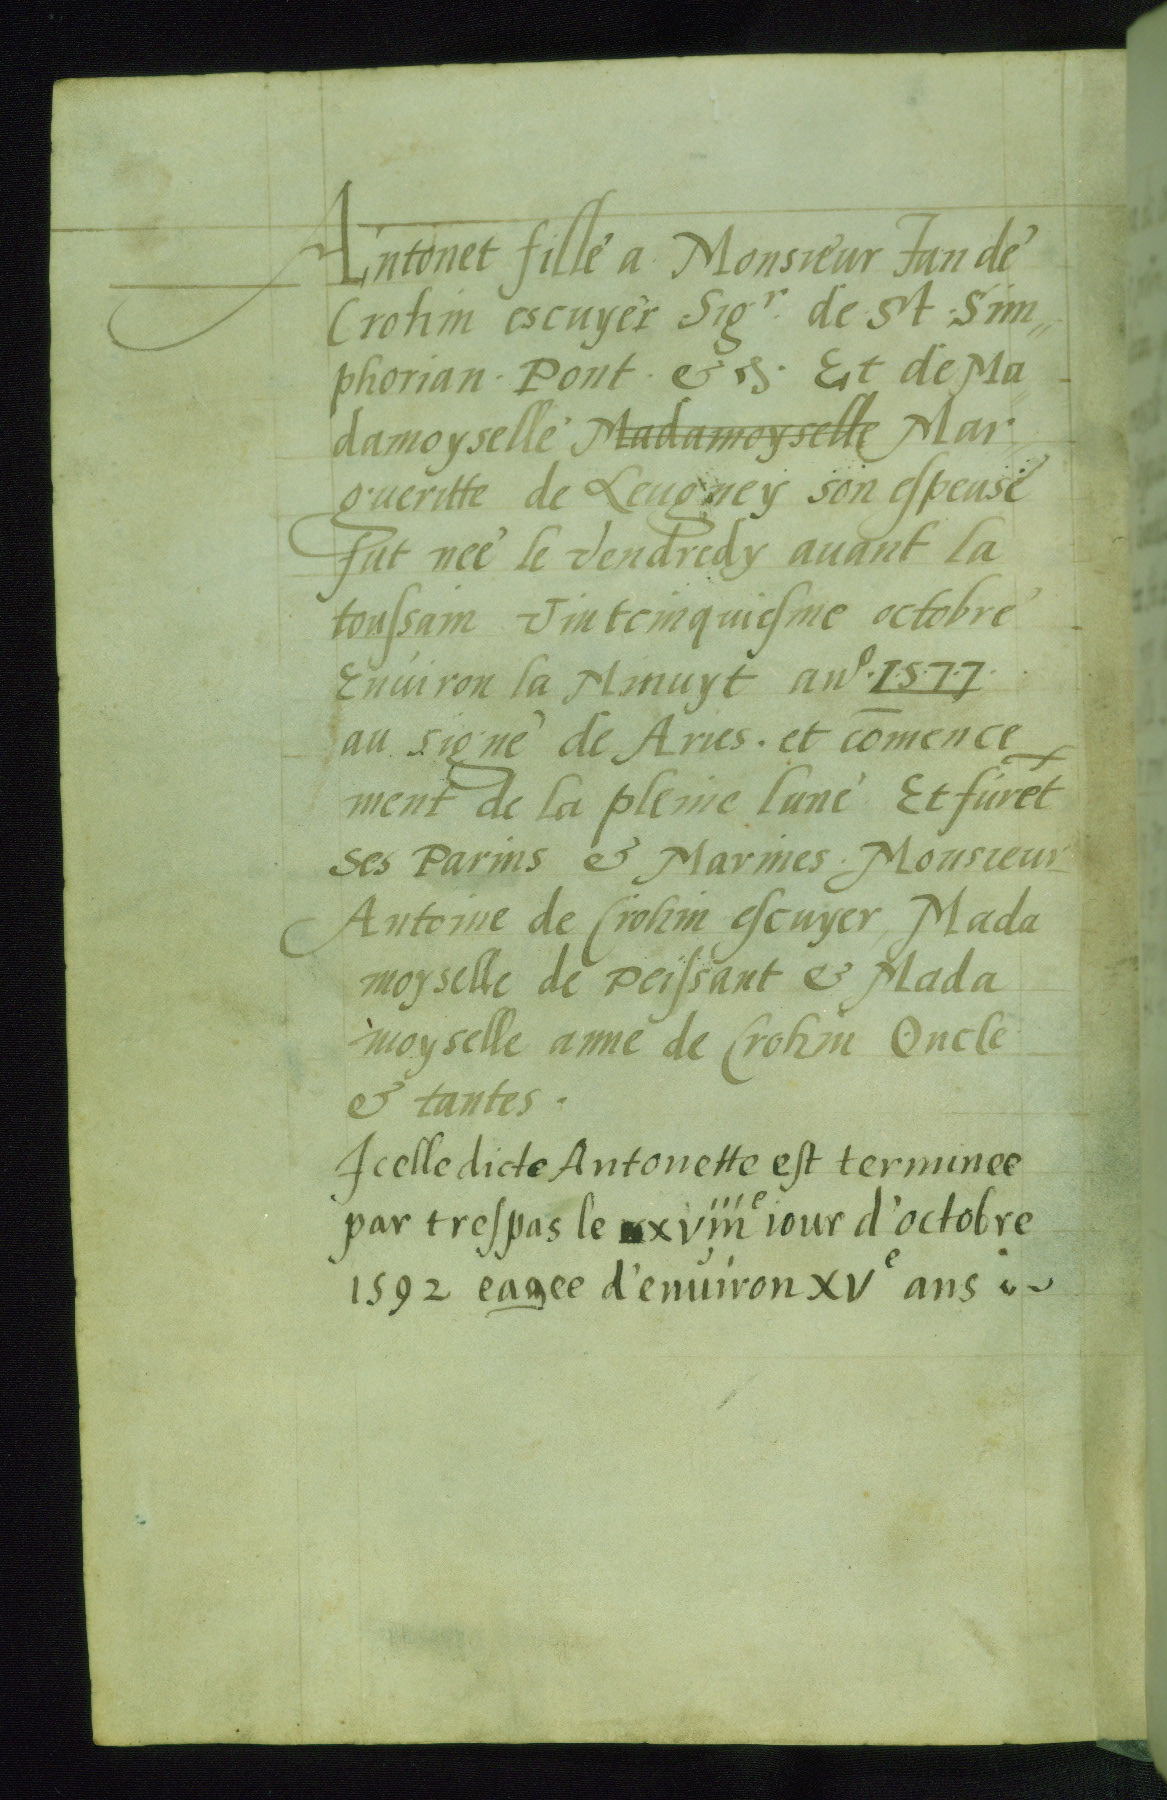 Antonet fille a Monsieur Jan de
Crohin escuyer Sigr. de St. Sim„
phorian. Pont. & Et de Ma
damoyselle Madamoyselle Mar„
gueritte de Leugney son espeuse
fut nee le Vendredy auant la
toussain Vintcinquiesme octobre
Enuiron la Minuyt ano. 1577.
au signe de Aries. et cōmence
ment de la pleine lune Et furēt
ses Parins & Marines. Monsieur
Antoine de Crohin escuyer, Mada
moyselle de Peissant & Mada
moyselle anne de Crohin Oncle
& tantes.
Icelle dicte Antonette est terminee
par trespas le xviiie iour d'octobre
1592 eagee d'enuiron XVe ans